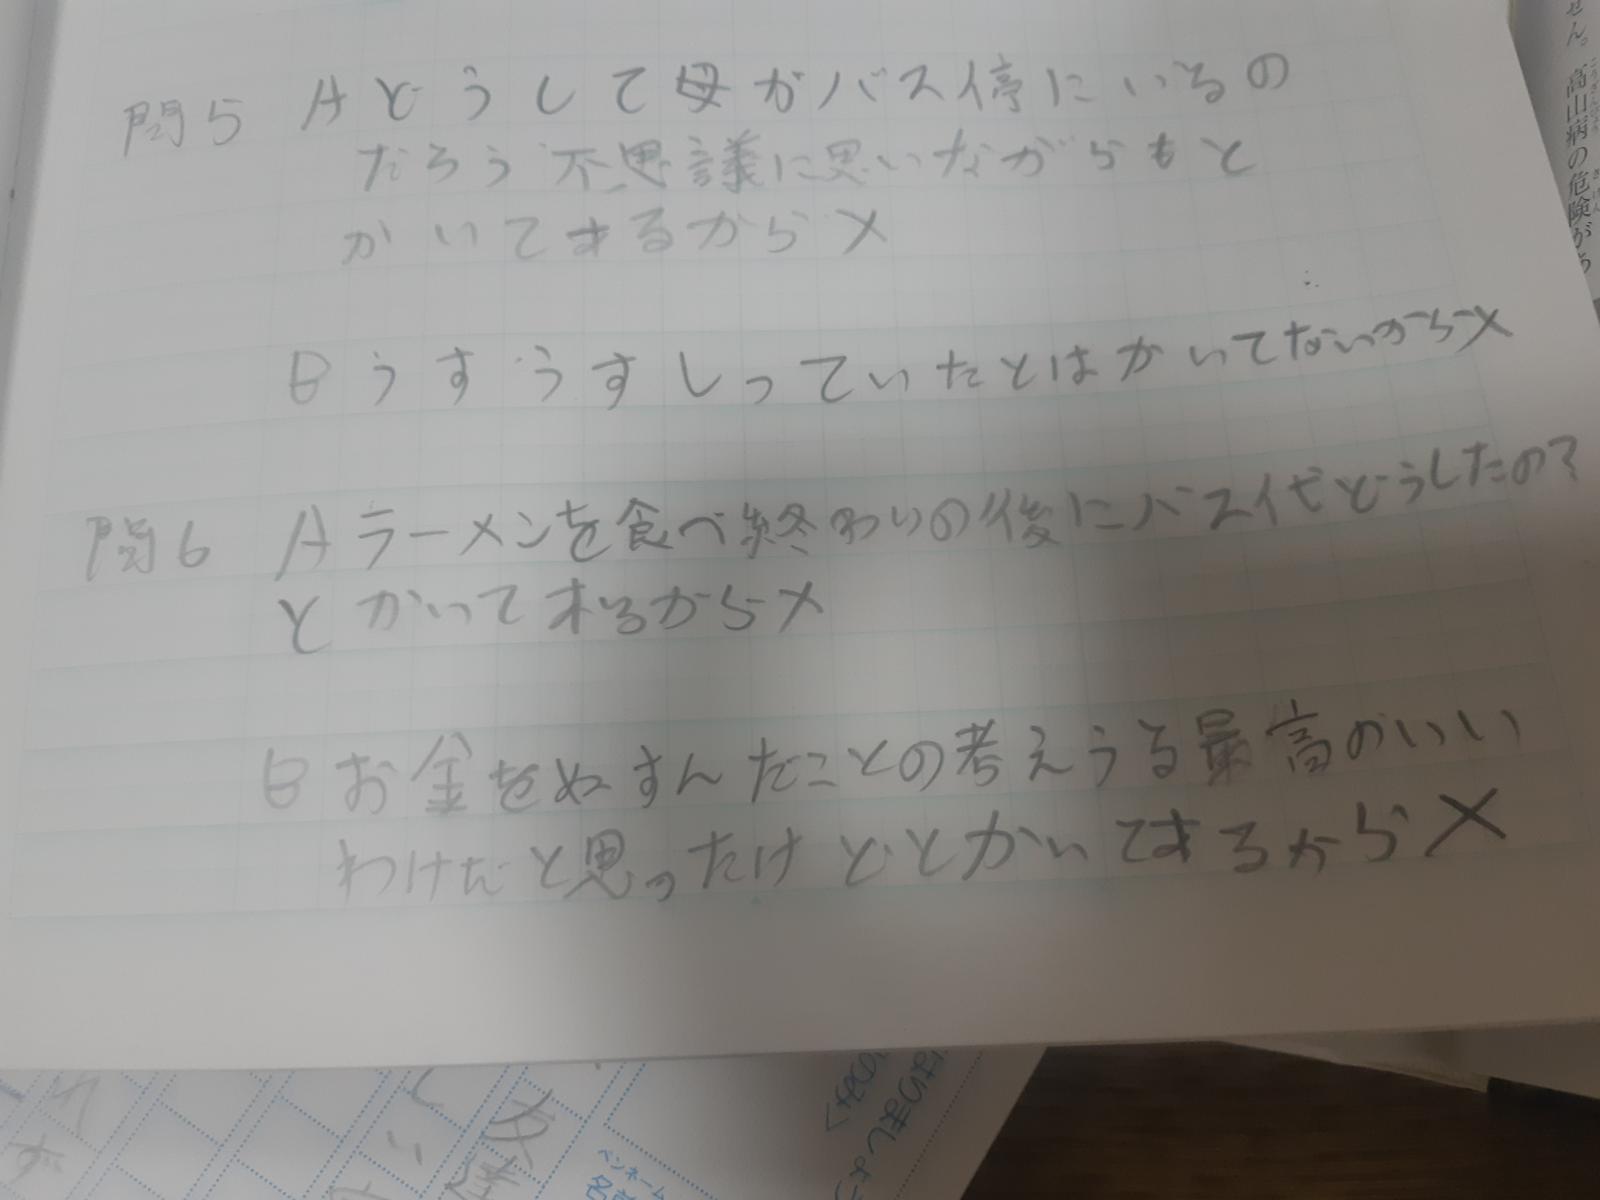 問5 Aどうして母がバス停にいるの
だろう不思議に思いながらもと
かいてあるから×
Bうすうすしっていたとはかいてないから×
問6 Aラーメンを食べ終わりの後にバス代どうしたの?
とかいてあるから×
Bお金をぬすんだことの考えうる最高のいい
わけだと思ったけどとかいてあるから×
せん。高山病の危険があ
ペンネーム